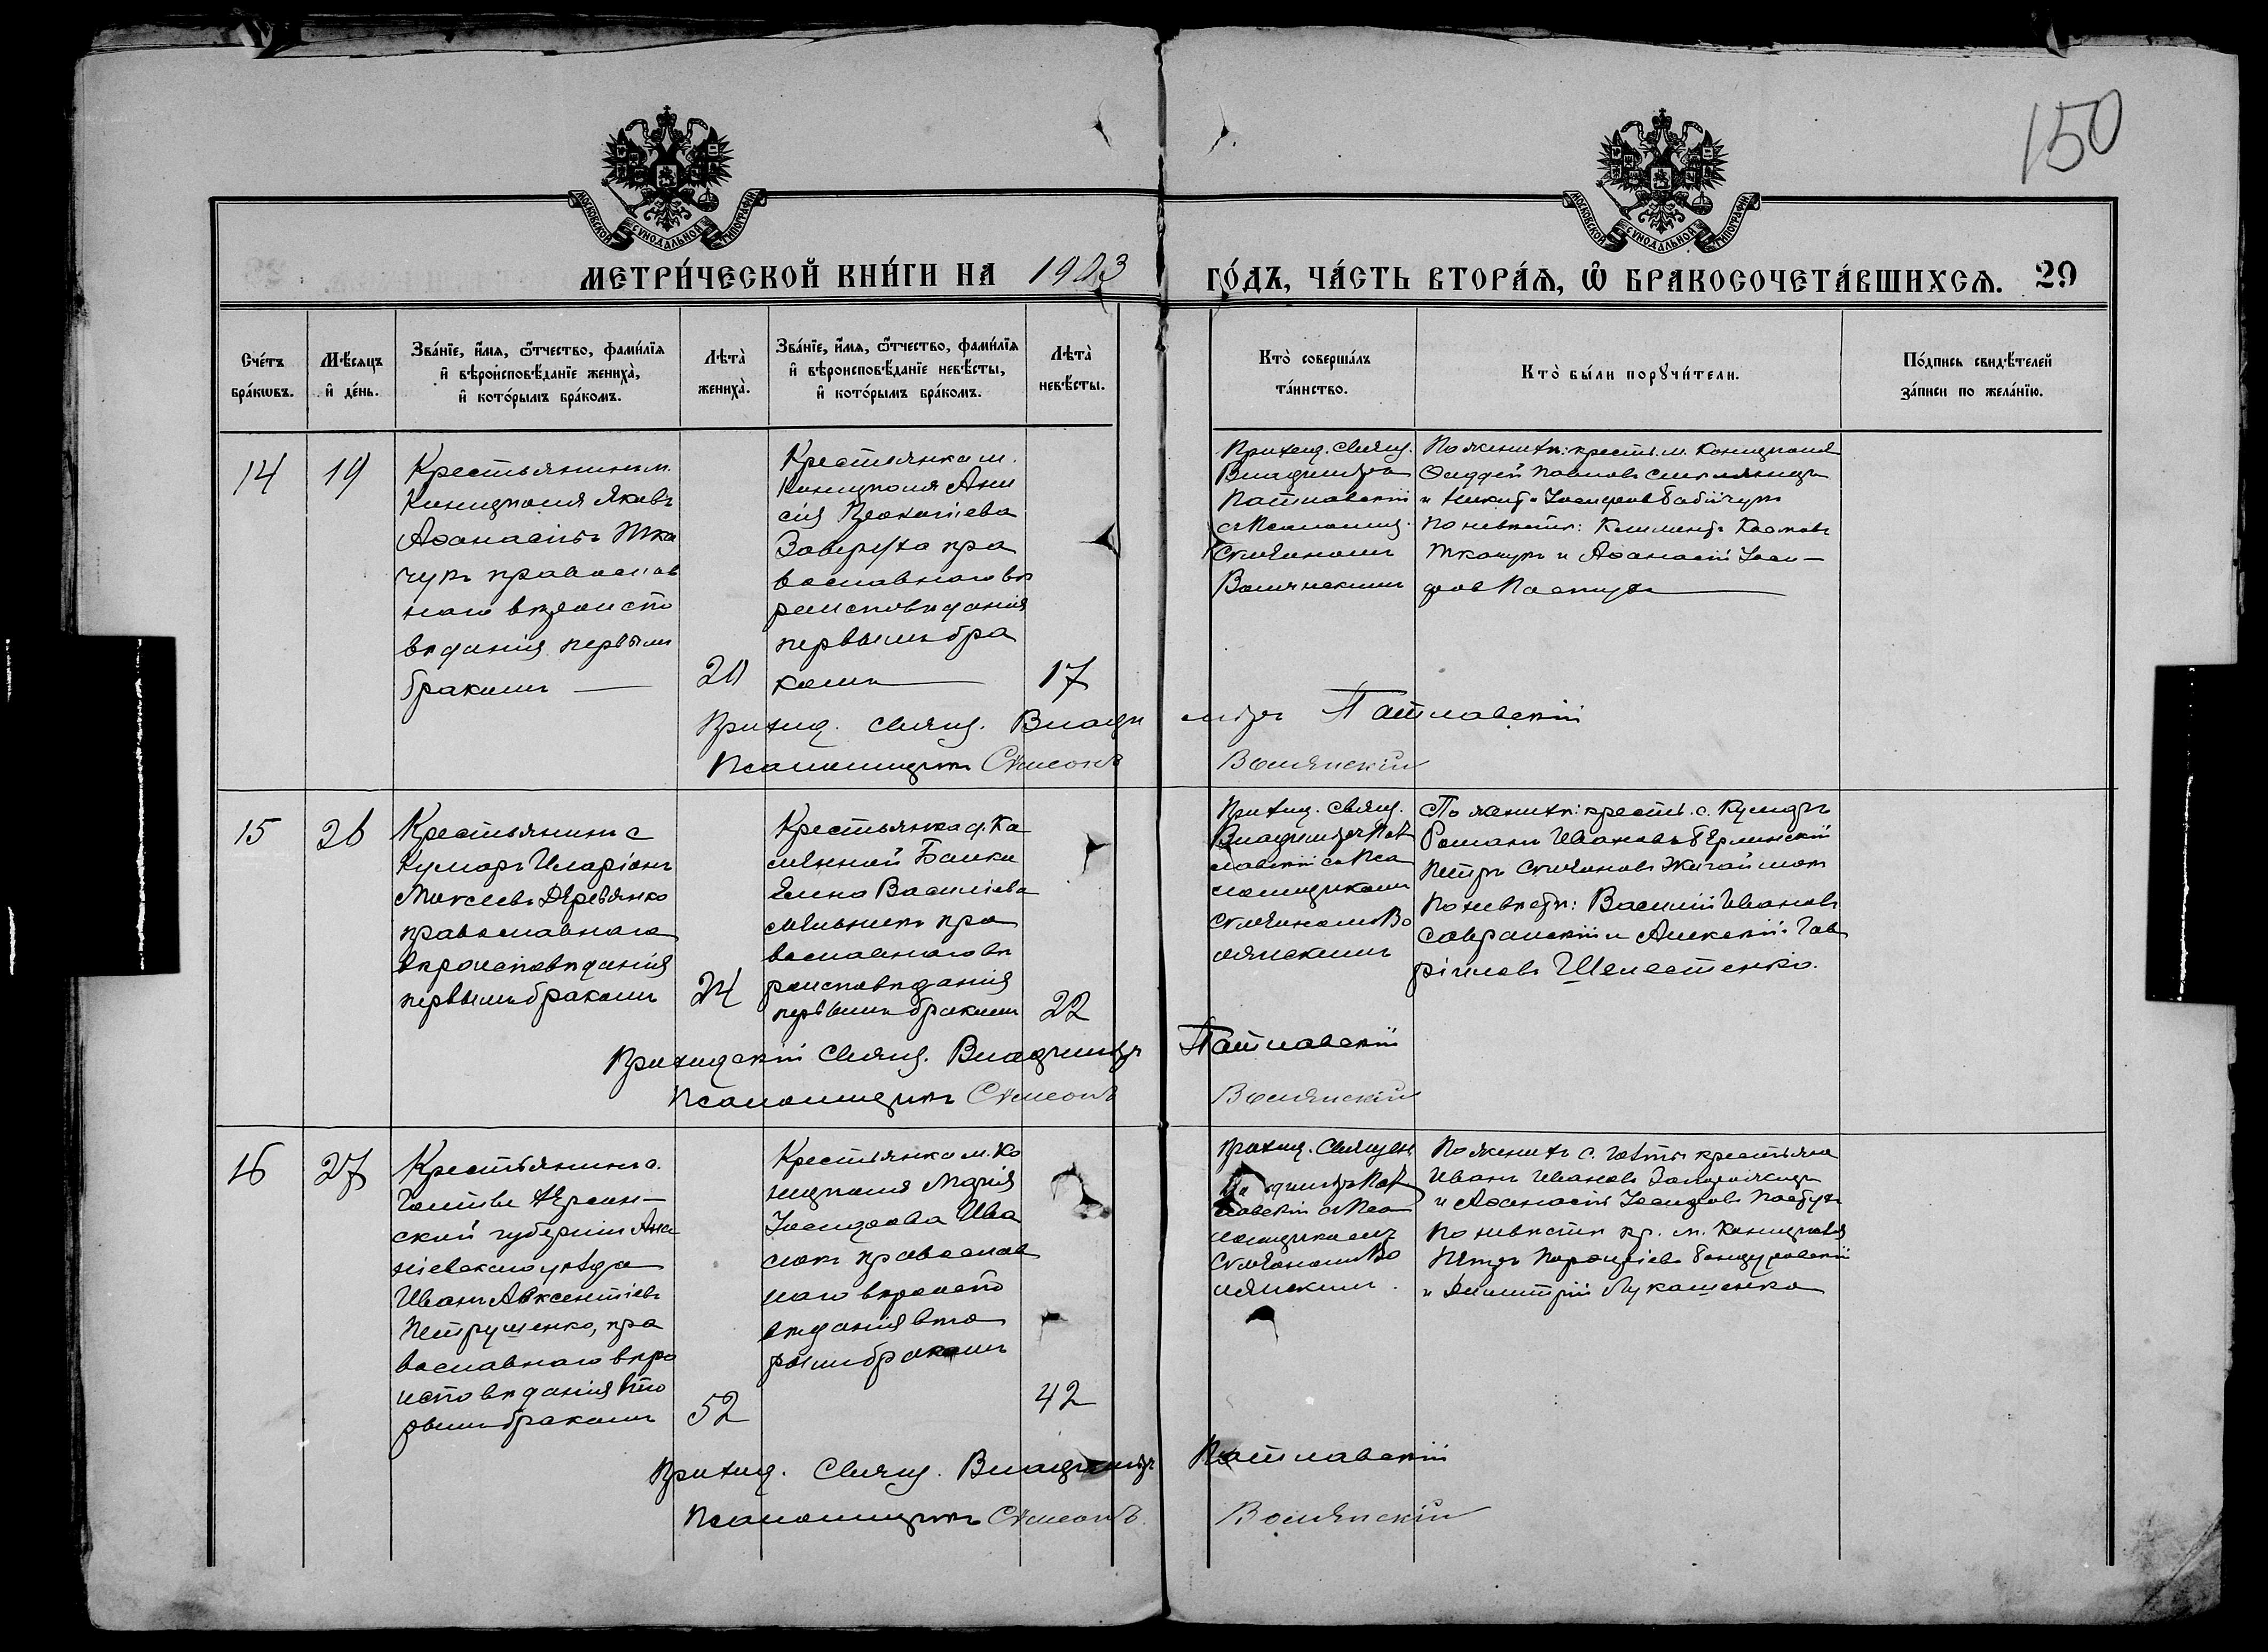 150
МОСКОВСКОЙ СѴНОДАЛЬНОЙ ТИПОГРАФІИ
МОСКОВСКОЙ СѴНОДАЛЬНОЙ ТИПОГРАФІИ
МЕТРИ́ЧЕСКОЙ КНИ́ГИ НА 1903 ГО́ДЪ, ЧА́СТЬ ВТОРА́Ѧ, Ѡ҆ БРАКОСОЧЕТА́ВШИХСѦ. 29
Сче́тъ
бра́кѡвъ.
Мѣ́сяцъ
и҆ де́нь.
Зва́нїе, и҆́мѧ, ѻ҆́тчество, фами́лїѧ
и҆ вѣроисповѣ́данїе жениха̀,
и҆ кото́рымъ бра́комъ.
Лѣта̀
жениха̀.
Зва́нїе, и҆́мѧ, ѻ҆́тчество, фами́лїѧ
и҆ вѣроисповѣ́данїе невѣ́сты,
и҆ кото́рымъ бра́комъ.
Лѣта̀
невѣ́сты.
Кто̀ соверша́лъ
та́инство.
Кто̀ бы́ли порꙋчи́тели.
По́дпись свидѣ́телей
за́писи по жела́нїю.
14
19
Крестьянинъ м.
Конецполя Яковъ
Аѳанасіевъ Тка
чукъ православ
наго вѣроиспо
вѣданія первымъ
бракомъ
20
Крестьянка м.
Конецполя Ани
сія Прокопіева
Заверуха пра
вославнаго вѣ
роисповѣданія
первымъ бра
комъ
17
Приход. Свящ.
Владиміръ
Патлавскій
съ Псаломщ.
Стефаномъ
Волянскимъ
По женихѣ: крест. м. Конецполя
Ѳаддей Павловъ
и Никита Іосифовъ Бабійчукъ
По невѣстѣ: Климентъ Козмовъ
Ткачукъ и Аѳанасій Іоси-
фовъ Пастухъ
Приход. Свящ. Владиміръ Патлавскій
Псаломщикъ Стефанъ Волянскій
15
26
Крестьянинъ с.
Кумаръ Иларіонъ
Моисеевъ Деревянко
православнаго
вѣроисповѣданія
первымъ бракомъ
24
Крестьянка д. Ка
менной Балки
Елена Василіева
Мельникъ пра
вославнаго вѣ
роисповѣданія
первымъ бракомъ
22
Приход. Свящ.
Владиміръ Пат
лавскій съ Пса
ломщикомъ
Стефаномъ Во
лянскимъ
По женихѣ: крест. с. Кумаръ
Романъ Ивановъ
Петръ Стефановъ
По невѣстѣ: Василій Ивановъ
Савранскій и Алексѣй Гав
ріиловъ Шелестенко.
Приходскій Свящ. Владиміръ Патлавскій
Псаломщикъ Стефанъ Волянскій
16
27
Крестьянинъ с.
Гольмы Херсон-
ской губерніи Ана
ніевскаго уѣзда
Иванъ Авксентіевъ
Петрушенко, пра
вославнаго вѣро
исповѣданія вто
рымъ бракомъ
52
Крестьянка м. Ко
нецполя Марія
Іосифова Ива
нюкъ православ
наго вѣроиспо
вѣданія вто
рымъ бракомъ
42
Приход. Священ.
Владиміръ Пат
лавскій съ Пса
ломщикомъ
Стефаномъ Во
лянскимъ.
По женихѣ с. крестьяне
Иванъ Ивановъ
и Аѳанасій Іосифовъ Пастухъ
По невѣстѣ кр. м. Конецполя
Петръ Бондуровскій
и Димитрій Лукашенко
Приход. Свящ. Владиміръ Патлавскій
Псаломщикъ Стефанъ Волянскій